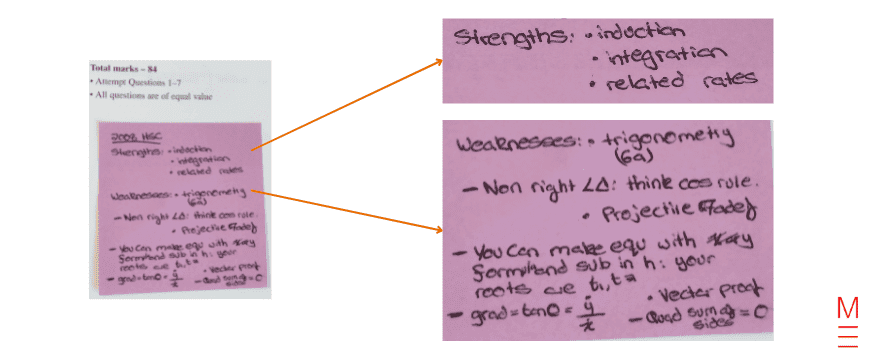 Total marks – 84
• Attempt Questions 1–7
• All questions are of equal value
2002 HSC
Strengths: • induction
• integration
• related rates
Weaknesses: • trigonometry
(6a)
– Non right ∠Δ: think cos rule.
• Projectile
– You Can make equ with
and sub in h: your
roots are t₁, t₂
– grad = tanθ = ẏ/ẋ
• Vector proof
– Quad sum of sides = 0
Strengths: • induction
• integration
• related rates
Weaknesses: • trigonometry
(6a)
– Non right ∠Δ: think cos rule.
• Projectile
– You Can make equ with
and sub in h: your
roots are t₁, t₂
• Vector proof
– grad = tanθ = ẏ/ẋ
– Quad sum of = 0
sides
M